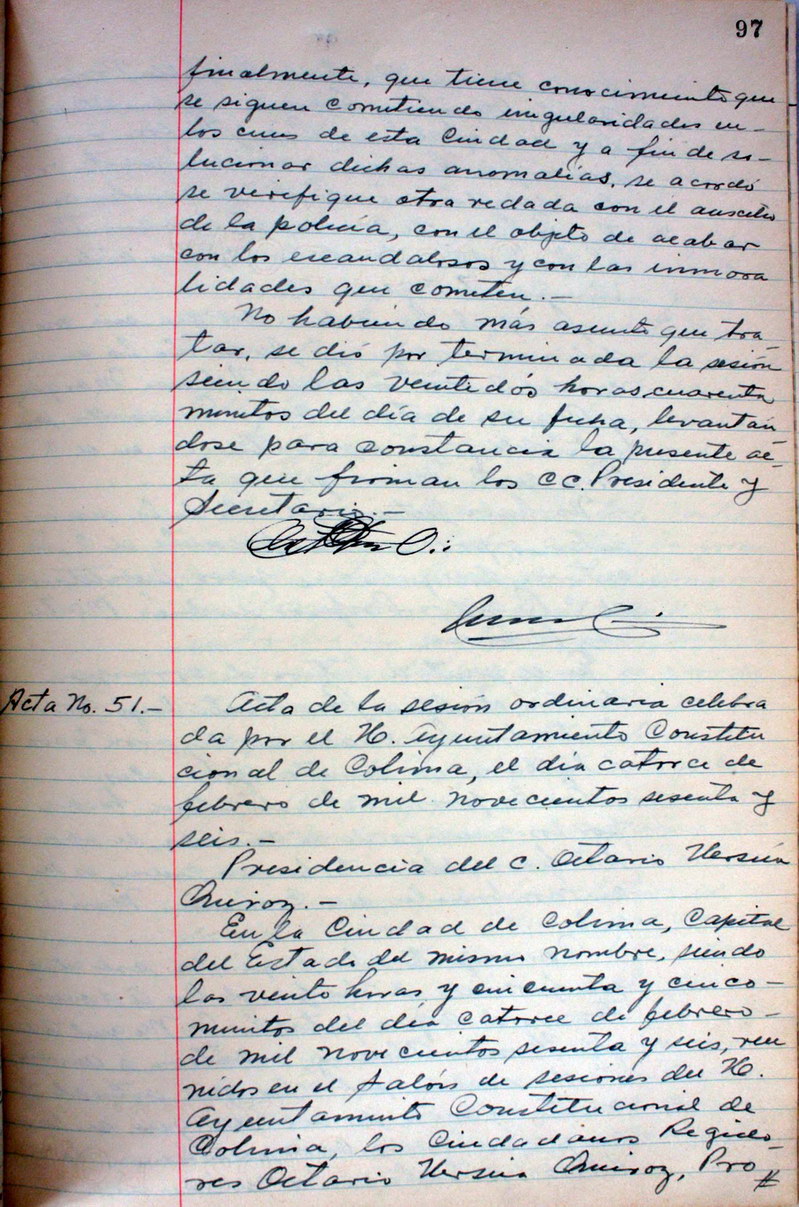 97
finalmente, que tiene conocimiento que
se siguen cometiendo irregularidades en-
los cines de esta Ciudad y a fin de so-
lucionar dichas anomalías, se acordó
se verifique otra redada con el auxilio
de la policía, con el objeto de acabar
con los escandalosos y con las inmora
lidades que cometen.-
No habiendo más asunto que tra-
tar, se dió por terminada la sesión
siendo las veintidós horas cuarenta
minutos del día de su fecha, levantán
dose para constancia la presente ac-
ta que firman los CC. Presidente y
Secretario.-
Acta No. 51.-
Acta de la sesión ordinaria celebra
da por el H. Ayuntamiento Constitu
cional de Colima, el día catorce de
febrero de mil novecientos sesenta y
seis.-
Presidencia del C. Octavio Ursúa
Quiroz.-
En la Ciudad de Colima, Capital
del Estado del mismo nombre, siendo
las veinte horas y cincuenta y cinco-
minutos del día catorce de febrero-
de mil novecientos sesenta y seis, reu
nidos en el Salón de sesiones del H.
Ayuntamiento Constitucional de
Colima, los Ciudadanos Regido-
res Octavio Ursúa Quiroz, Pro
#